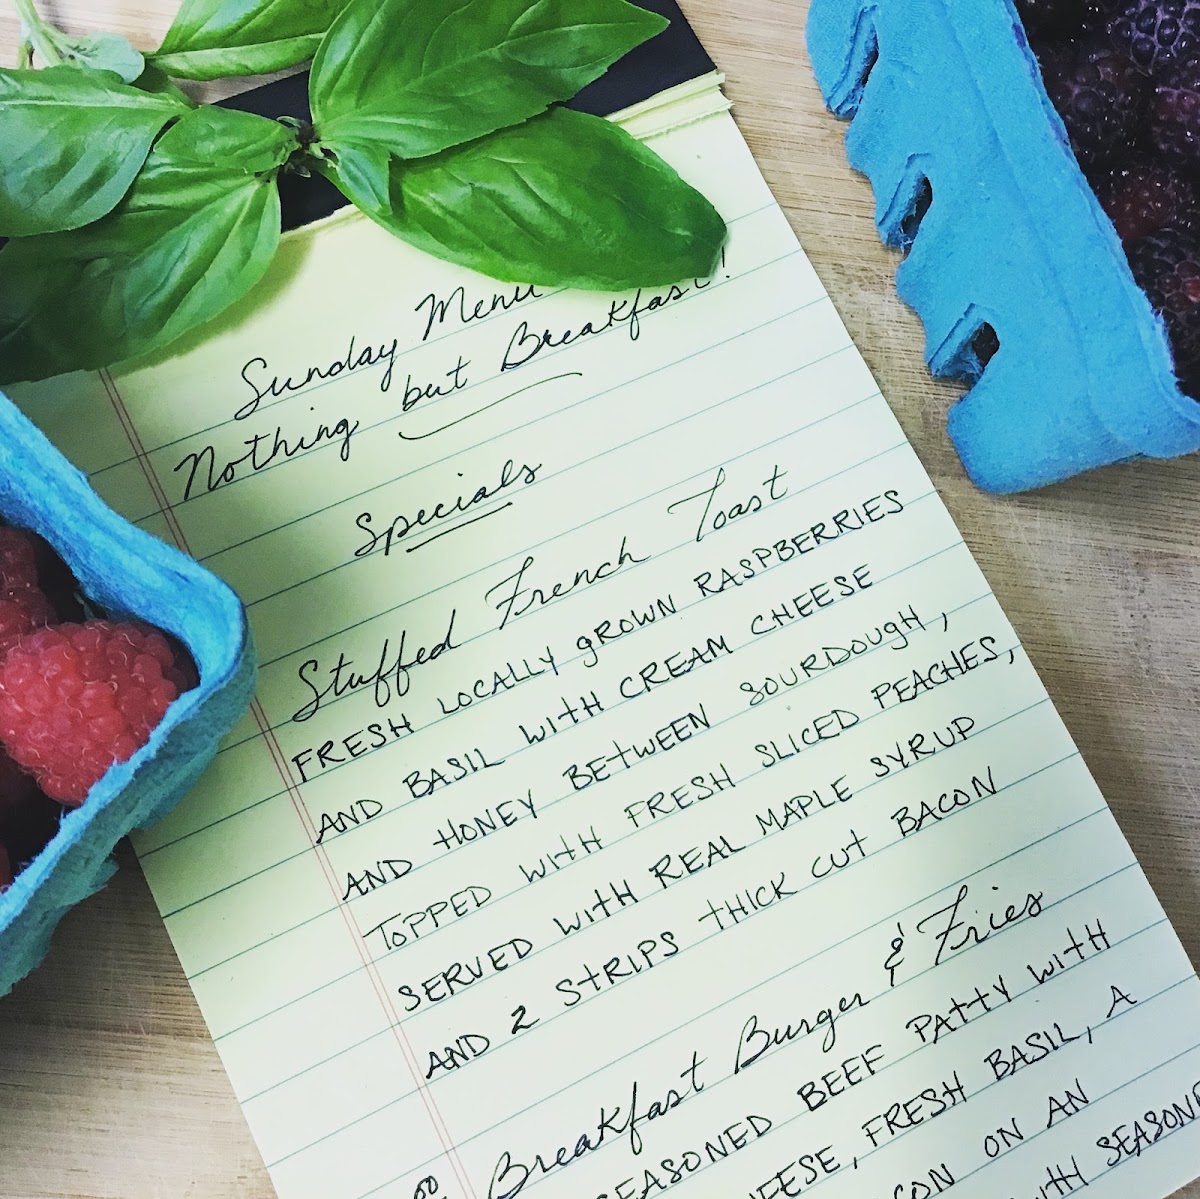 Sunday Menu
Nothing but Breakfast!
Specials
Stuffed French Toast
FRESH LOCALLY gROWN RASPBERRIES
AND BASIL WITH CREAM CHEESE
AND HONEY BETWEEN SOURDOUGH,
TOPPED WITH FRESH SLICED PEACHES,
SERVED WITH REAL MAPLE SYRUP
AND 2 STRIPS THICK CUT BACON
Breakfast Burger & Fries
SEASONED BEEF PATTY WITH
CHEESE, FRESH BASIL, A
ON AN
WITH